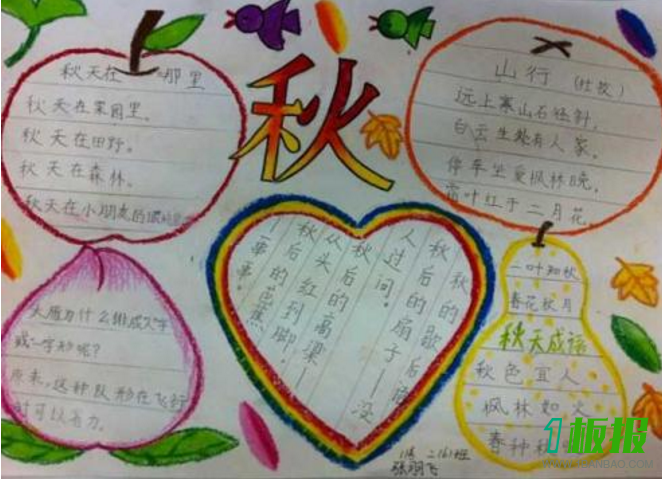 秋
秋天在哪里
秋天在菜园里。
秋天在田野。
秋天在森林。
秋天在小朋友的
山行 (杜牧)
远上寒山石径斜，
白云生处有人家，
停车坐爱枫林晚，
霜叶红于二月花。
秋的歇后语
秋后的扇子——没
人过问。
秋后的高梁——
从头红到脚。
秋后的芭蕉——
一串串。
大雁为什么排成人字
或一字形呢？
原来，这种队形在飞行
时可以省力。
一叶知秋
春花秋月
秋天成语
秋色宜人
枫林如火
春种秋
二(6)班
张羽飞
1板报